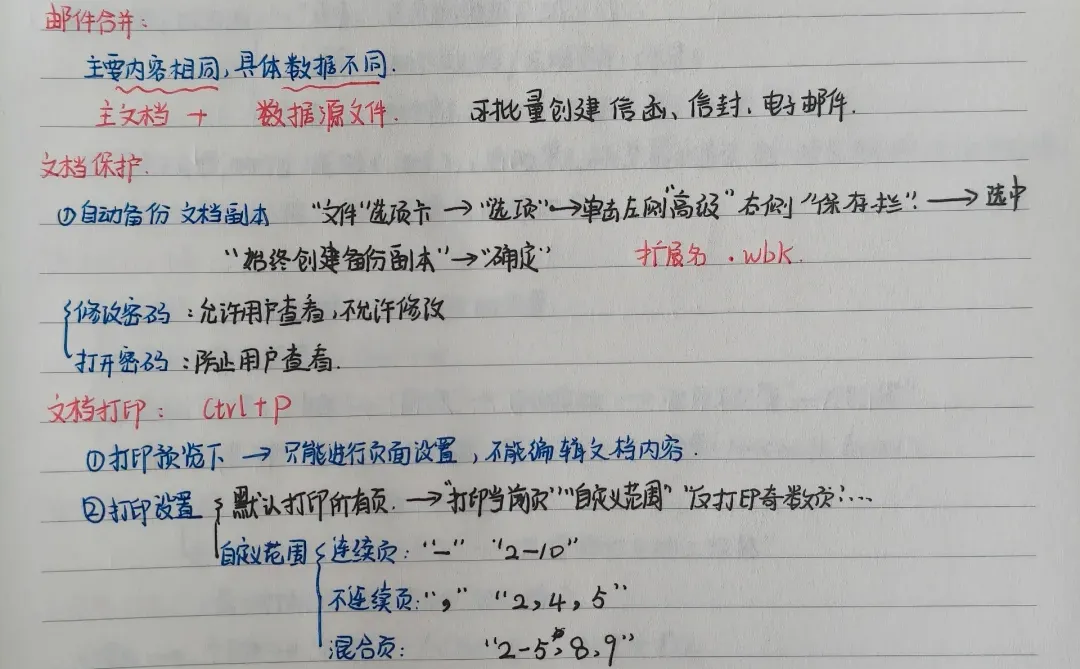 邮件合并:
主要内容相同,具体数据不同.
主文档 + 数据源文件. 可批量创建 信函、信封、电子邮件.
文档保护.
①自动备份 文档副本 "文件"选项卡 → "选项" → 单击左侧"高级" 右侧 "保存栏": → 选中
"始终创建备份副本" → "确定" 扩展名 .wbk.
修改密码:允许用户查看,不允许修改
打开密码:防止用户查看.
文档打印: Ctrl+P
①打印预览下 → 只能进行页面设置,不能编辑文档内容.
②打印设置 默认打印所有页. → "打印当前页" "自定义范围" "仅打印奇数页"...
自定义范围 连续页: "-" "2-10"
不连续页: "," "2,4,5"
混合页: "2-5,8,9"